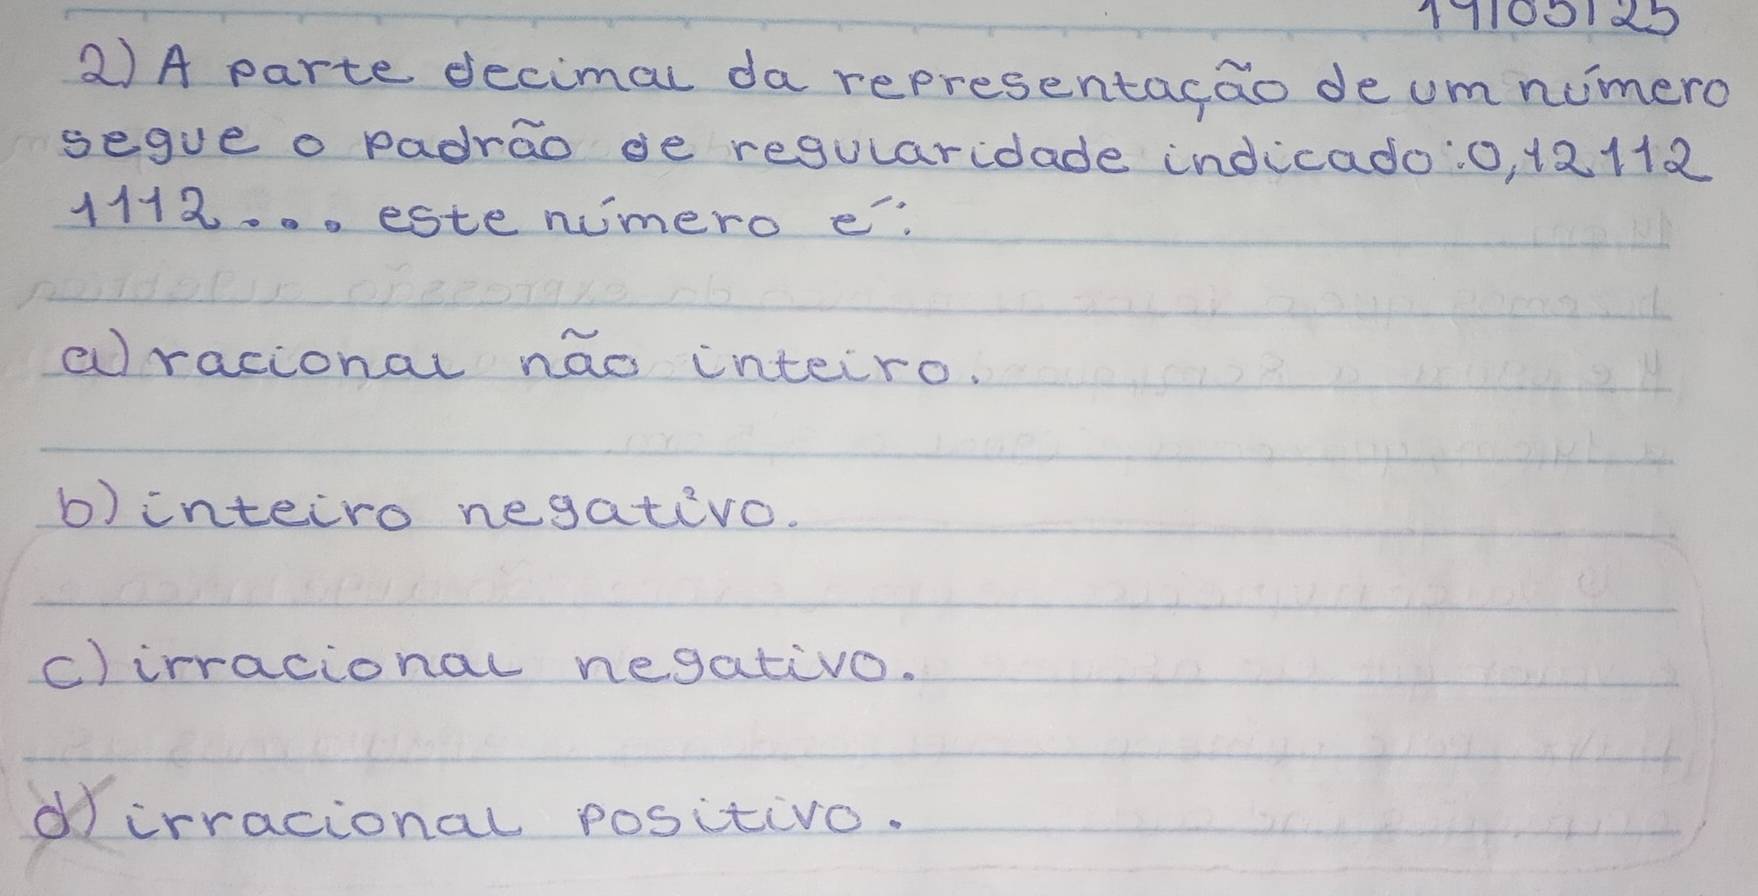 19/05/25
2) A parte decimal da representação de um número
segue o padrão de regularidade indicado: 0,12112
1112... este número é:
a) racional não inteiro.
b) inteiro negativo.
c) irracional negativo.
d) irracional positivo.